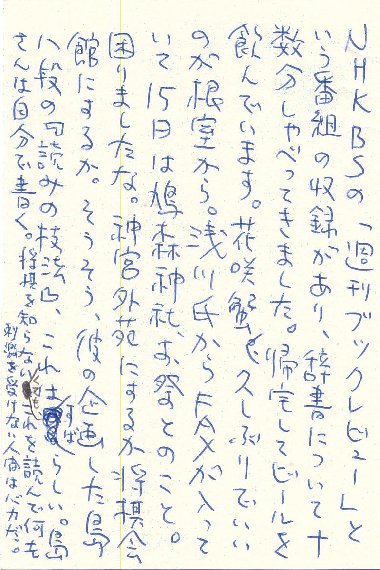 NHKBSの「週刊ブックレビュー」と
いう番組の収録があり、辞書について十
数分しゃべってきました。帰宅してビールを
飲んでいます。花咲蟹も久しぶりでいい
のが根室から。浅川氏からFAXが入って
いて15日は鳩森神社、お祭とのこと。
困りましたな。神宮外苑にするか将棋会
館にするか。そうそう、彼の企画した島
八段の『読みの技法』、これはすばらしい。島
さんは自分で書く。将棋を知らなくても、これを読んで何も
刺激を受けない人間はバカだ。